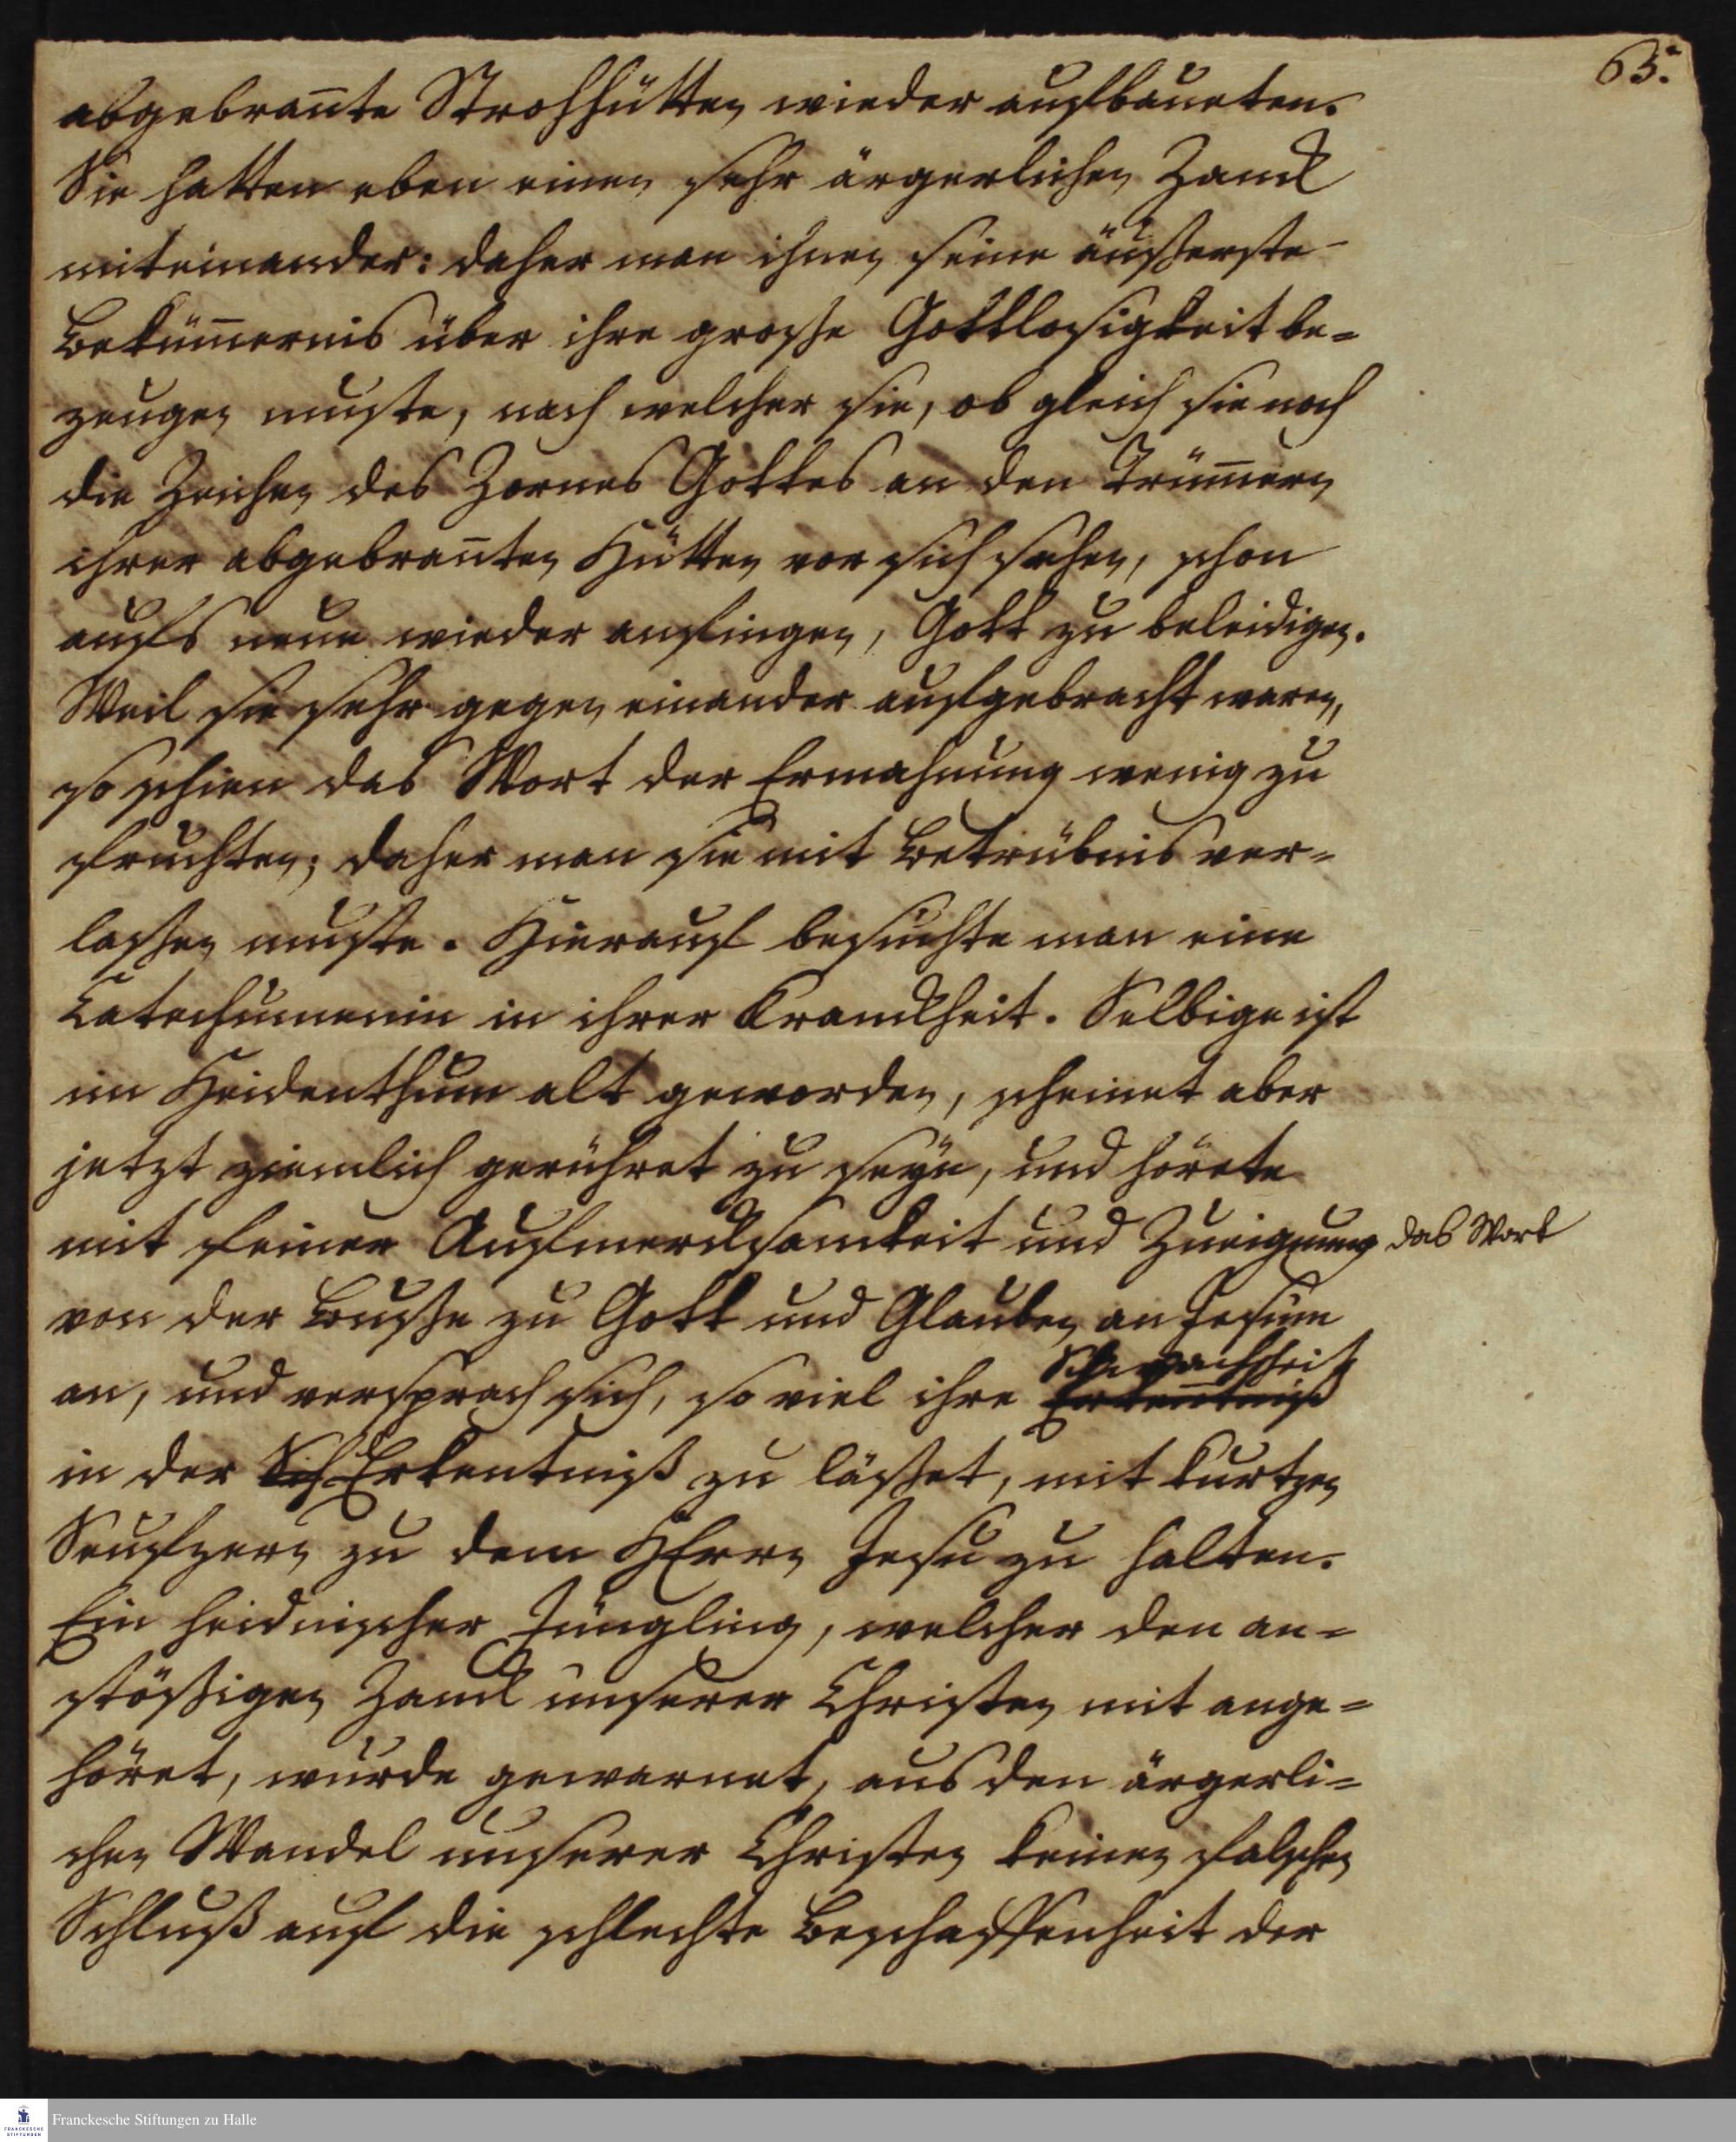 63.
abgebrañte Strohhütten wieder aufbaueten.
Sie hatten eben einen sehr ärgerlichen Zanck
miteinander: daher man ihnen seine äußerste
Bekum̄ernis über ihre grosse Gottlosigkeit be=
zeugen muste, nach welcher sie, ob gleich sie noch
die Zeichen des Zornes Gottes an den Trüm̄ern
ihrer abgebrañten Hütten vor sich sehen, schon
aufs neue wieder anfingen, Gott zu beleidigen.
Weil sie sehr gegen einander aufgebracht waren,
so schien das Wort der Ermahnung wenig zu
fruchten; daher man sie mit Betrübnis ver=
lassen muste. Hierauf besuchte man eine
Catechumenin in ihrer Kranckheit. Selbige ist
im Heidenthum alt geworden, scheinet aber
jetzt ziemlich gerühret zu seyn, und hörete
mit feiner Aufmercksamkeit und Zueignung das Wort
von der Busse zu Gott und Glauben an Jesum
an, und versprach sich, so viel ihre Erkeñtniß Schwachheit
in der Sch Erkentniß zu läßet, mit kurtzen
Seufzern zu dem HErrn Jesu zu halten.
Ein heidnischer Jüngling, welcher den an=
stößigen Zanck unserer Christen mit ange=
höret, wurde gewarnet, aus den ärgerli=
chen Wandel unserer Christen keinen falschen
Schluß auf die schlechte Beschaffenheit der
Franckesche Stiftungen zu Halle
FRANCKESCHE
STIFTUNGEN